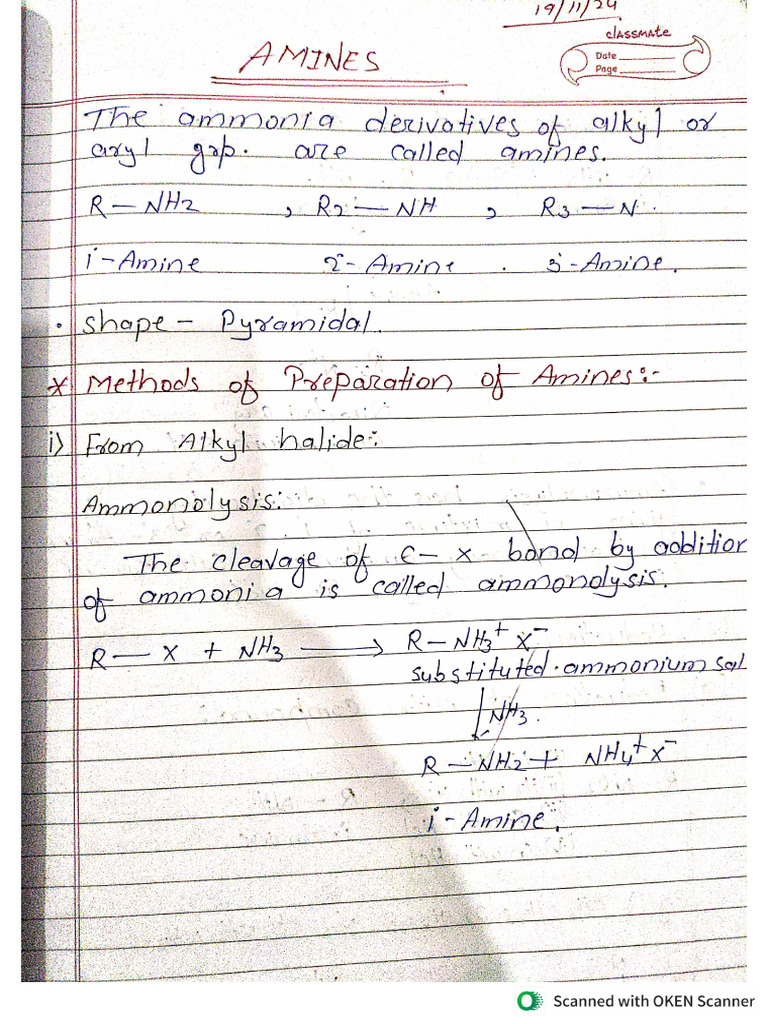 19/11/24
classmate
Date
Page
AMINES
The ammonia derivatives of alkyl or
aryl grp. are called amines.
R — NH2 , R2 — NH , R3 — N.
1°-Amine 2°-Amine . 3°-Amine.
• Shape - Pyramidal.
* Methods of Preparation of Amines:-
i) From Alkyl halide:
Ammonolysis:
The cleavage of C-X bond by addition
of ammonia is called ammonolysis.
R — X + NH3 ⟶ R-NH3+ X-
substituted ammonium sal
↓ NH3.
R — NH2 + NH4+ X-
1°-Amine.
Scanned with OKEN Scanner